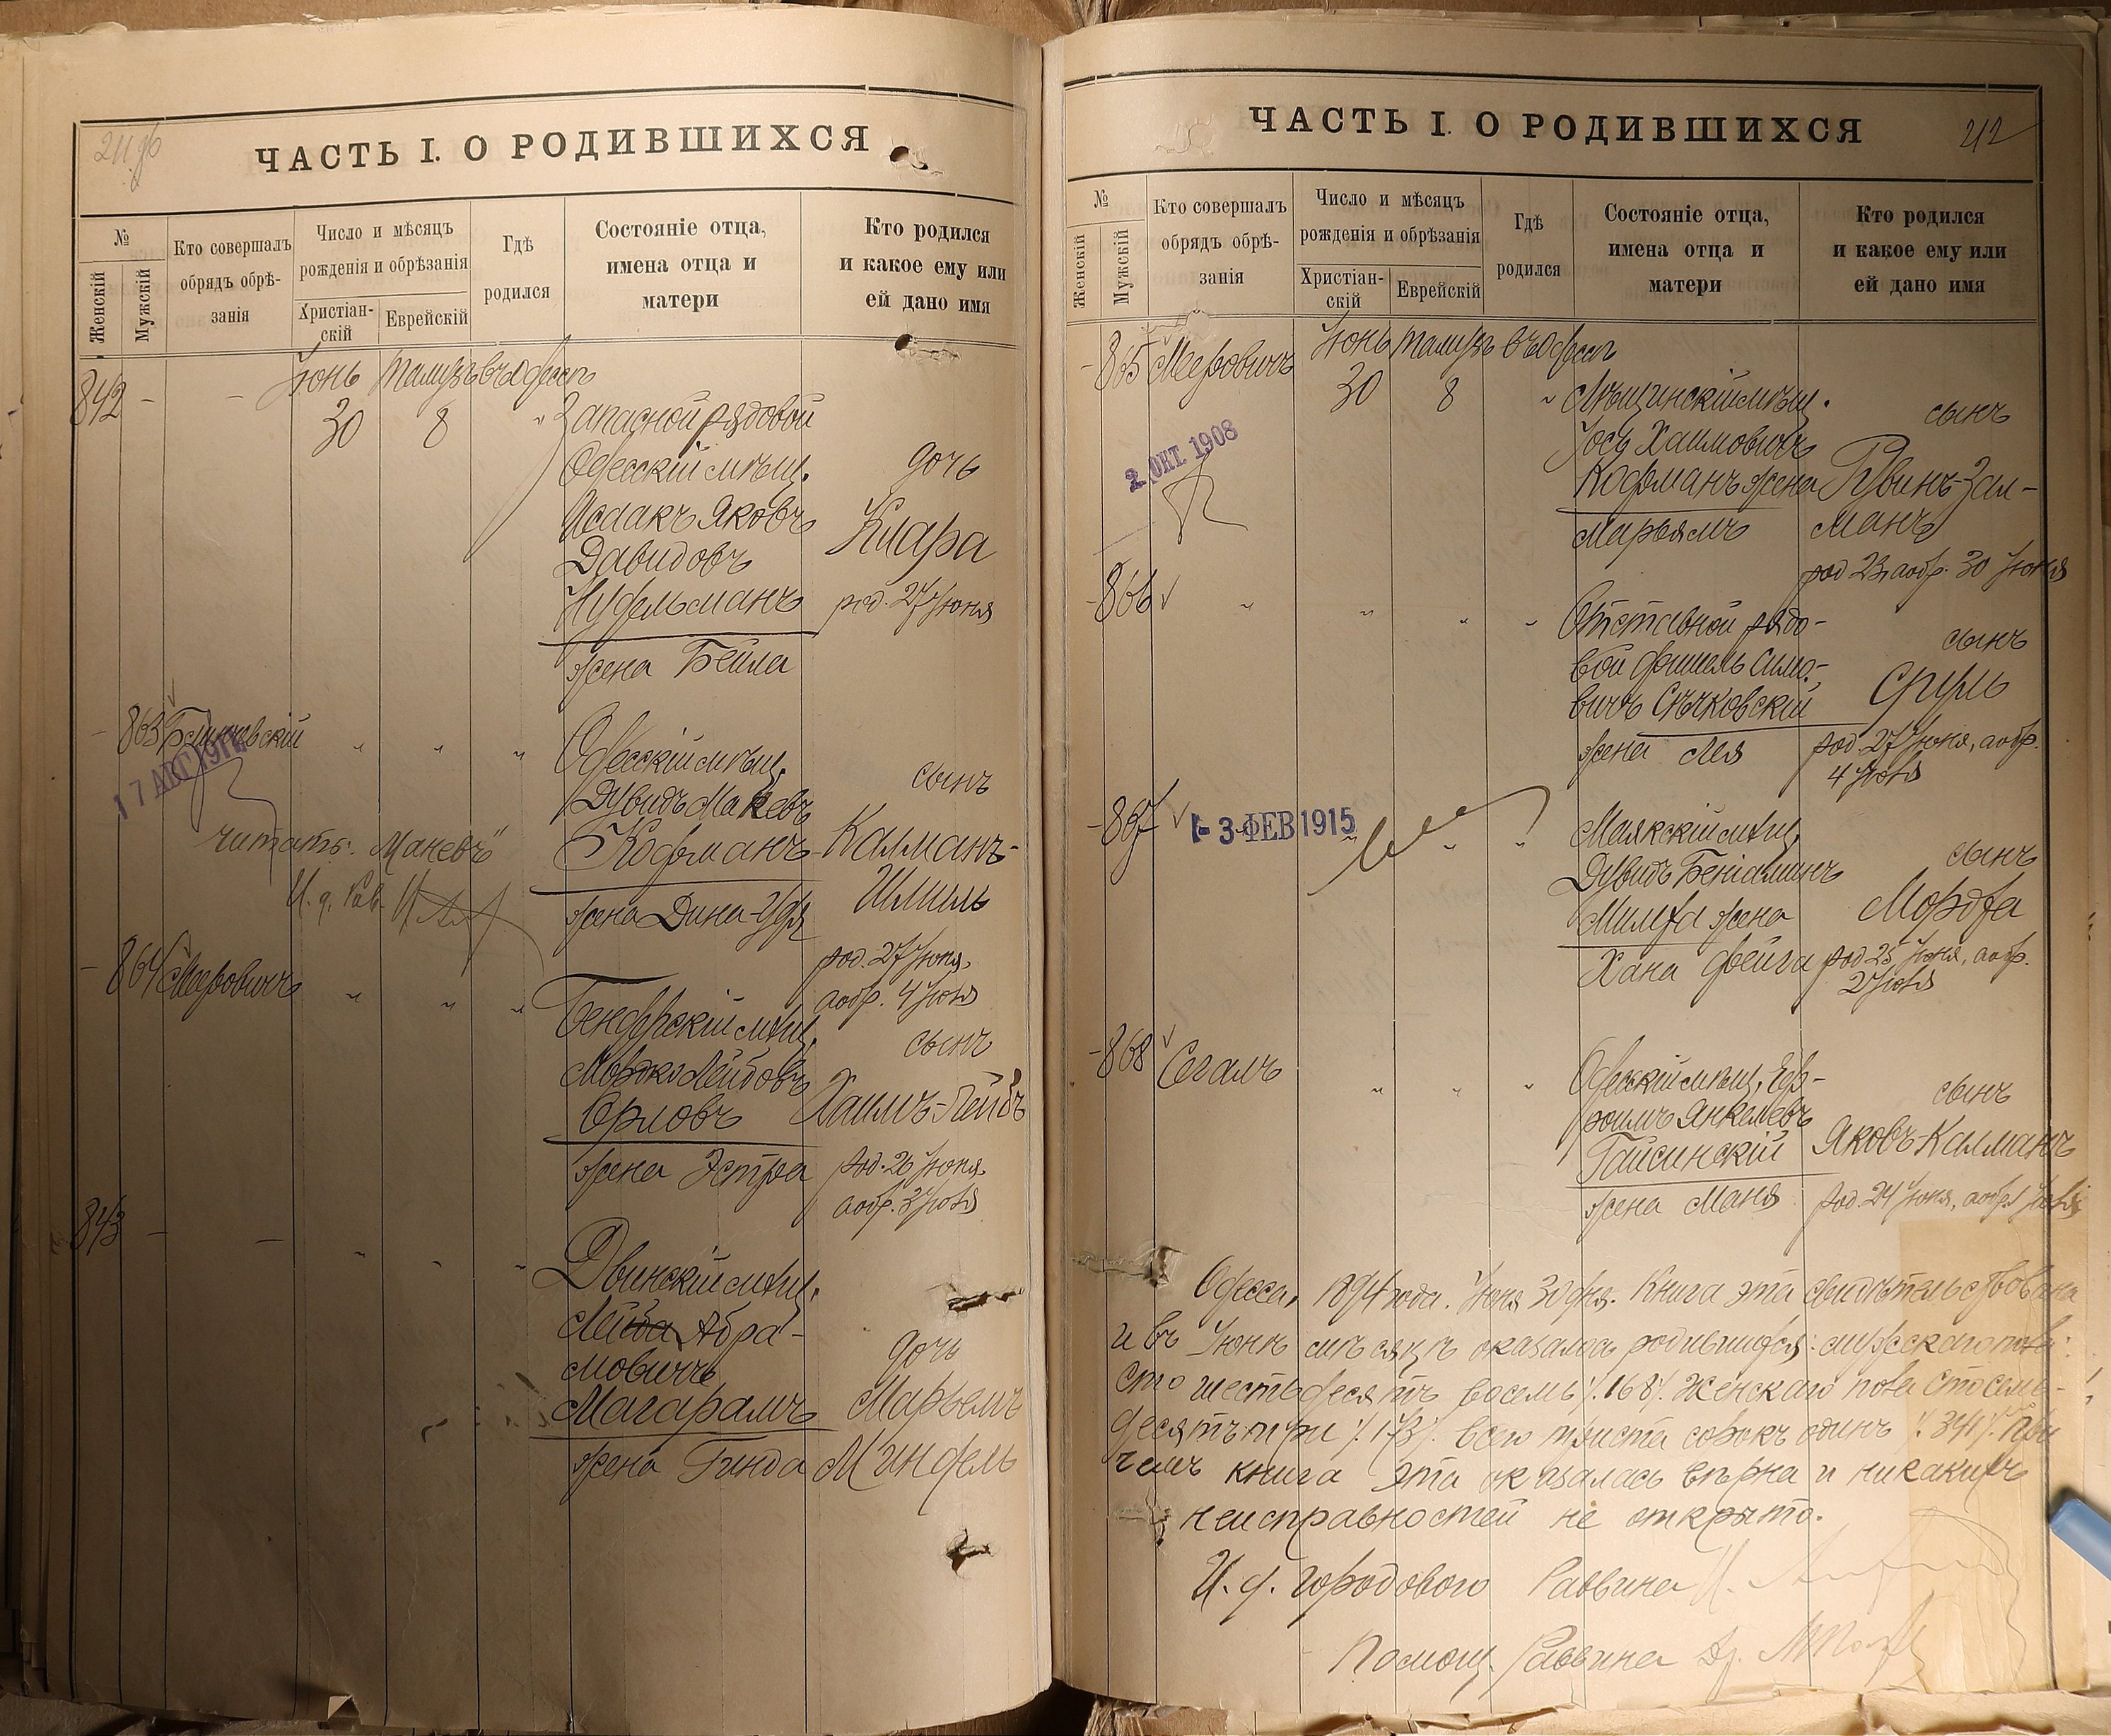 ЧАСТЬ I. О РОДИВШИХСЯ
№
Женскій
Мужскій
Кто совершалъ
обрядъ обрѣ-
занія
Число и мѣсяцъ
рожденія и обрѣзанія
Христіан-
скій
Еврейскій
Гдѣ
родился
Состояніе отца,
имена отца и
матери
Кто родился
и какое ему или
ей дано имя
842 - - Іюнь Тамузъ въ Одессѣ
30 8 " Запасной рядовой
Одесскій мѣщ.
Исаакъ Яковъ
Давидовъ
Нудельманъ
жена Бейла
дочь
Клара
род. 27 Іюня
- 863 " " "
17 АВГ 191
Одесскій мѣщ.
Дувидъ Макевъ
Кофманъ
жена Дина-
сынъ
Калманъ-
Шмиль
род. 27 Іюня,
а обр. 4 Іюля
читать: "Маневъ"
И. д. Рав.
- 864 Мееровичъ " " "
Бендерскій мѣщ.
Мордко Лейбовъ
Орловъ
жена Эстра
сынъ
Хаимъ-Лейбъ
род. 26 Іюня,
а обр. 3 Іюля
843 - - " " "
Двинскій мѣщ.
Лейба Абра-
мовичъ
Магарамъ
жена Гинда
дочь
Марьемъ
Миндель
ЧАСТЬ I. О РОДИВШИХСЯ
212
№
Женскій
Мужскій
Кто совершалъ
обрядъ обрѣ-
занія
Число и мѣсяцъ
рожденія и обрѣзанія
Христіан-
скій
Еврейскій
Гдѣ
родился
Состояніе отца,
имена отца и
матери
Кто родился
и какое ему или
ей дано имя
- 865 Мееровичъ Іюнь Тамузъ въ Одессѣ
30 8 "
2 ОКТ. 1908
мѣщ.
Іось Хаимовичъ
Кофманъ жена
Марьямъ
сынъ
Рувинъ-Зал-
манъ
род 23, а обр. 30 Іюня
- 866 " " " "
Отставной рядо-
вой Фишель Симо-
вичъ Сѣчковскій
жена Лея
сынъ
Сруль
род. 27 Іюня, а обр.
4 Іюля
- 867 " " "
- 3 ФЕВ 1915
Маякскій мѣщ.
Дувидъ Беніаминъ
жена
Хана Фейга
сынъ
Мордха
род 25 Іюня, а обр.
2 Іюля
- 868 Сегалъ " " "
Одесскій мѣщ. Еф-
роимъ Янкелевъ
Гайсинскій
жена Маня
сынъ
Яковъ-Калманъ
род. 24 Іюня, а обр. 1 Іюля
Одесса, 1894 года. Іюня 30 дня. Книга эта свидѣтельствована
и въ Іюнѣ мѣсяцѣ оказалось родившихся: мужскаго пола:
сто шестьдесятъ восемь /.168/. женскаго пола сто семь-
десять три /.173/. всего триста сорокъ одинъ /.341/. При
чемъ книга эта оказалась вѣрна и никакихъ
неисправностей не открыто.
И. д. Городового Раввина
Помощ. Раввина Др.